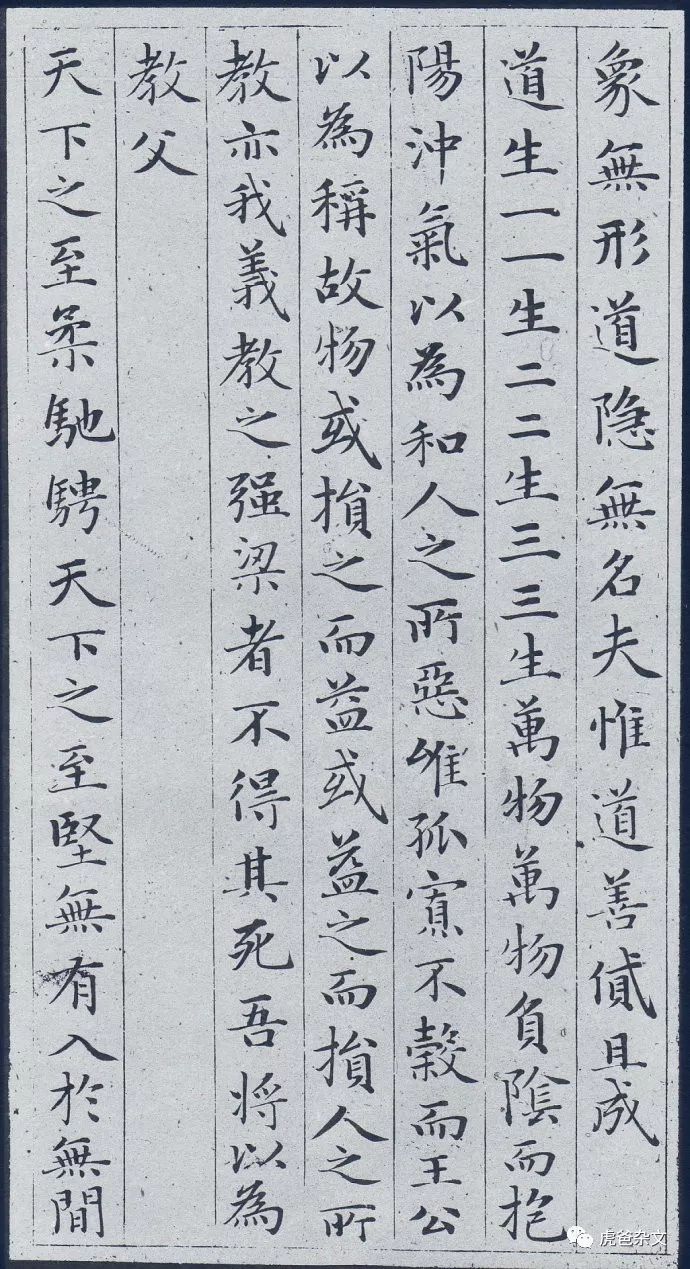 象無形道隐無名夫惟道善貸且成
道生一一生二二生三三生萬物萬物負陰而抱
陽沖氣以為和人之所惡唯孤寡不穀而王公
以為稱故物或損之而益或益之而損人之所
教亦我義教之强梁者不得其死吾将以為
教父
天下之至柔馳騁天下之至堅無有入於無間
虎爸杂文